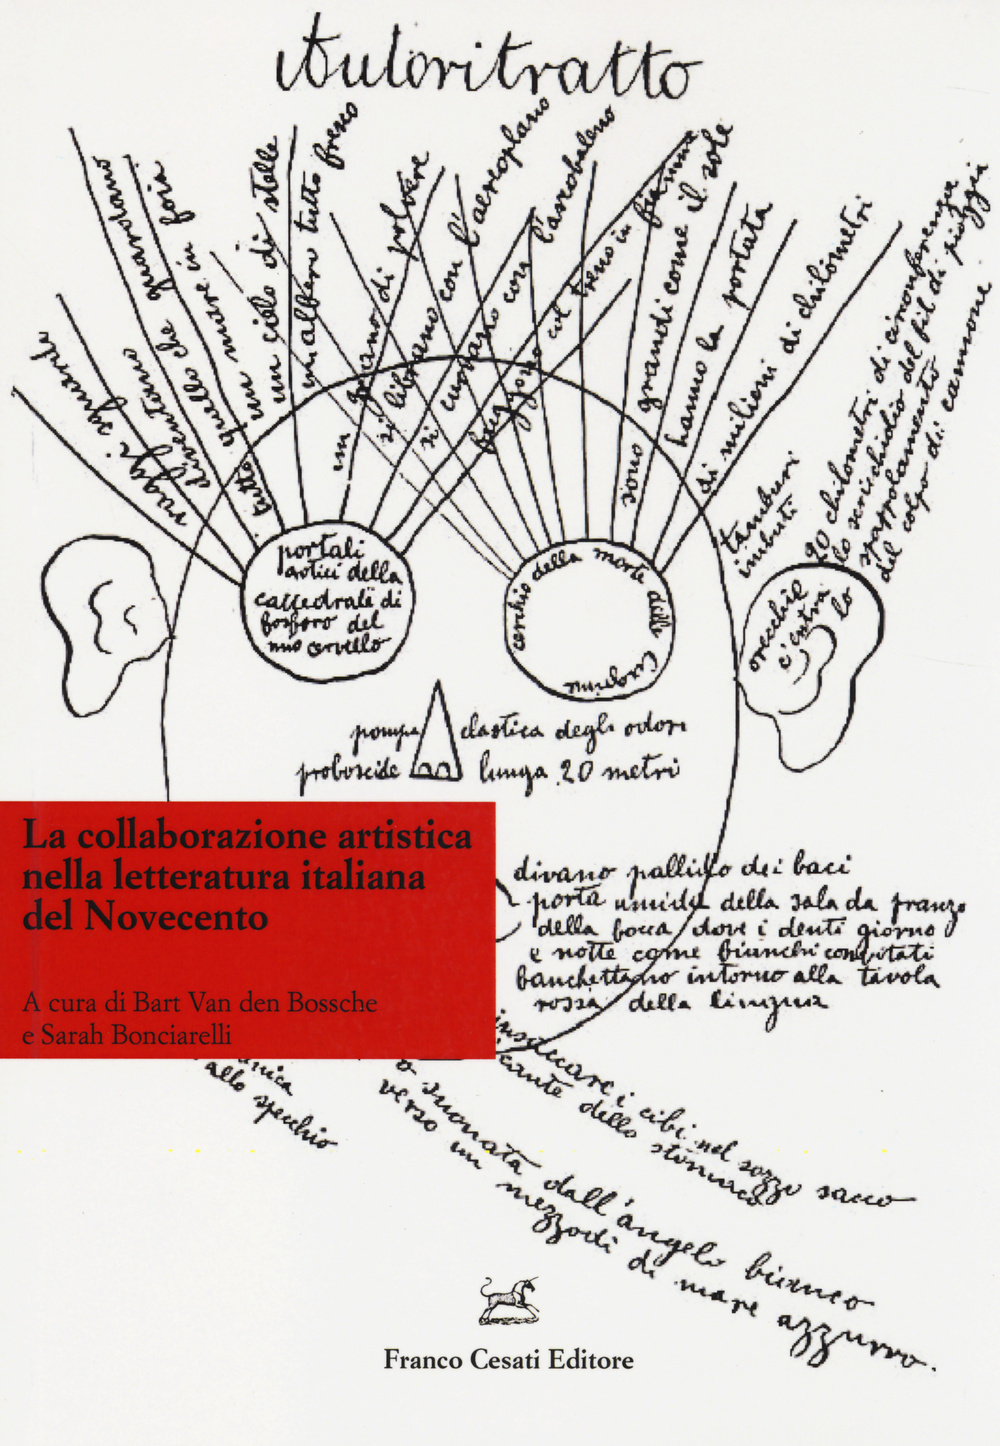 Autoritratto
raggi sguardi
diventano
tutto quello che guardano
un mare in foia
un cielo di stelle
un affare tutto fresco
un grano di polvere
si librano con l'aeroplano
si curvano con l'arcobaleno
fuggono col treno in fiamma
sono grandi come il sole
hanno la portata
di milioni di chilometri
tamburi
imbuti
20 chilometri di circonferenza
lo scrischidio del fil di pioggia
spappolamento
del colpo di cannone
portali
ogivi della
cattedrale di
fosforo del
mio cervello
cerchio della morte delle
orecchie
c'entra
lo
pompa elastica degli odori
proboscide lunga 20 metri
divano pallido dei baci
porta umida della sala da pranzo
della bocca dove i denti giorno
e notte come bianchi convitati
banchettano intorno alla tavola
rossa della lingua
La collaborazione artistica
nella letteratura italiana
del Novecento
A cura di Bart Van den Bossche
e Sarah Bonciarelli
insaccare i cibi nel sozzo sacco
dello stomaco
allo specchio
o suonata dall'angelo bianco
verso un mezzodì di mare azzurro.
Franco Cesati Editore